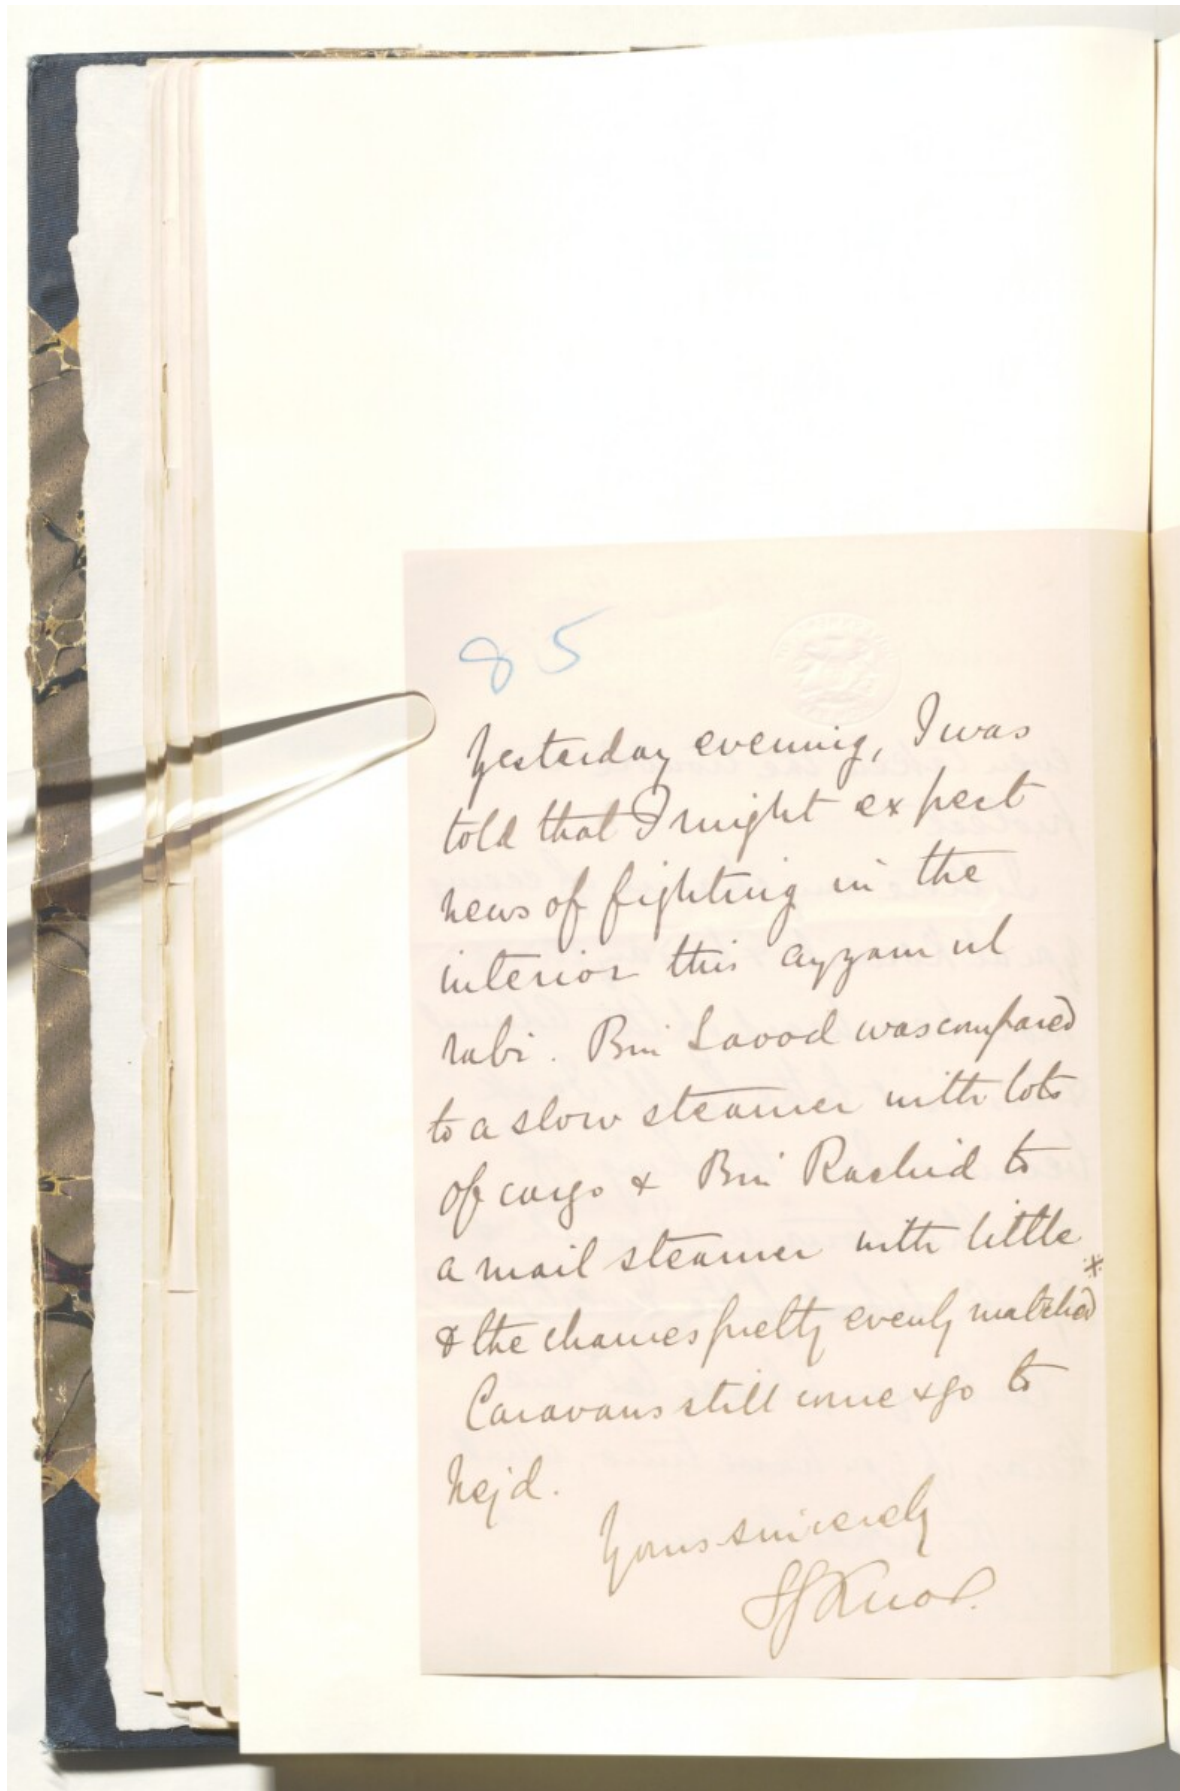 85
Yesterday evening, I was
told that I might expect
news of fighting in the
interior this ayyam ul
rabi. Bin Saood was compared
to a slow steamer with lots
of cargo & Bin Rashid to
a mail steamer with little *
& the chances pretty evenly matched
Caravans still come & go to
Nejd.
Yours sincerely
SGKnox.